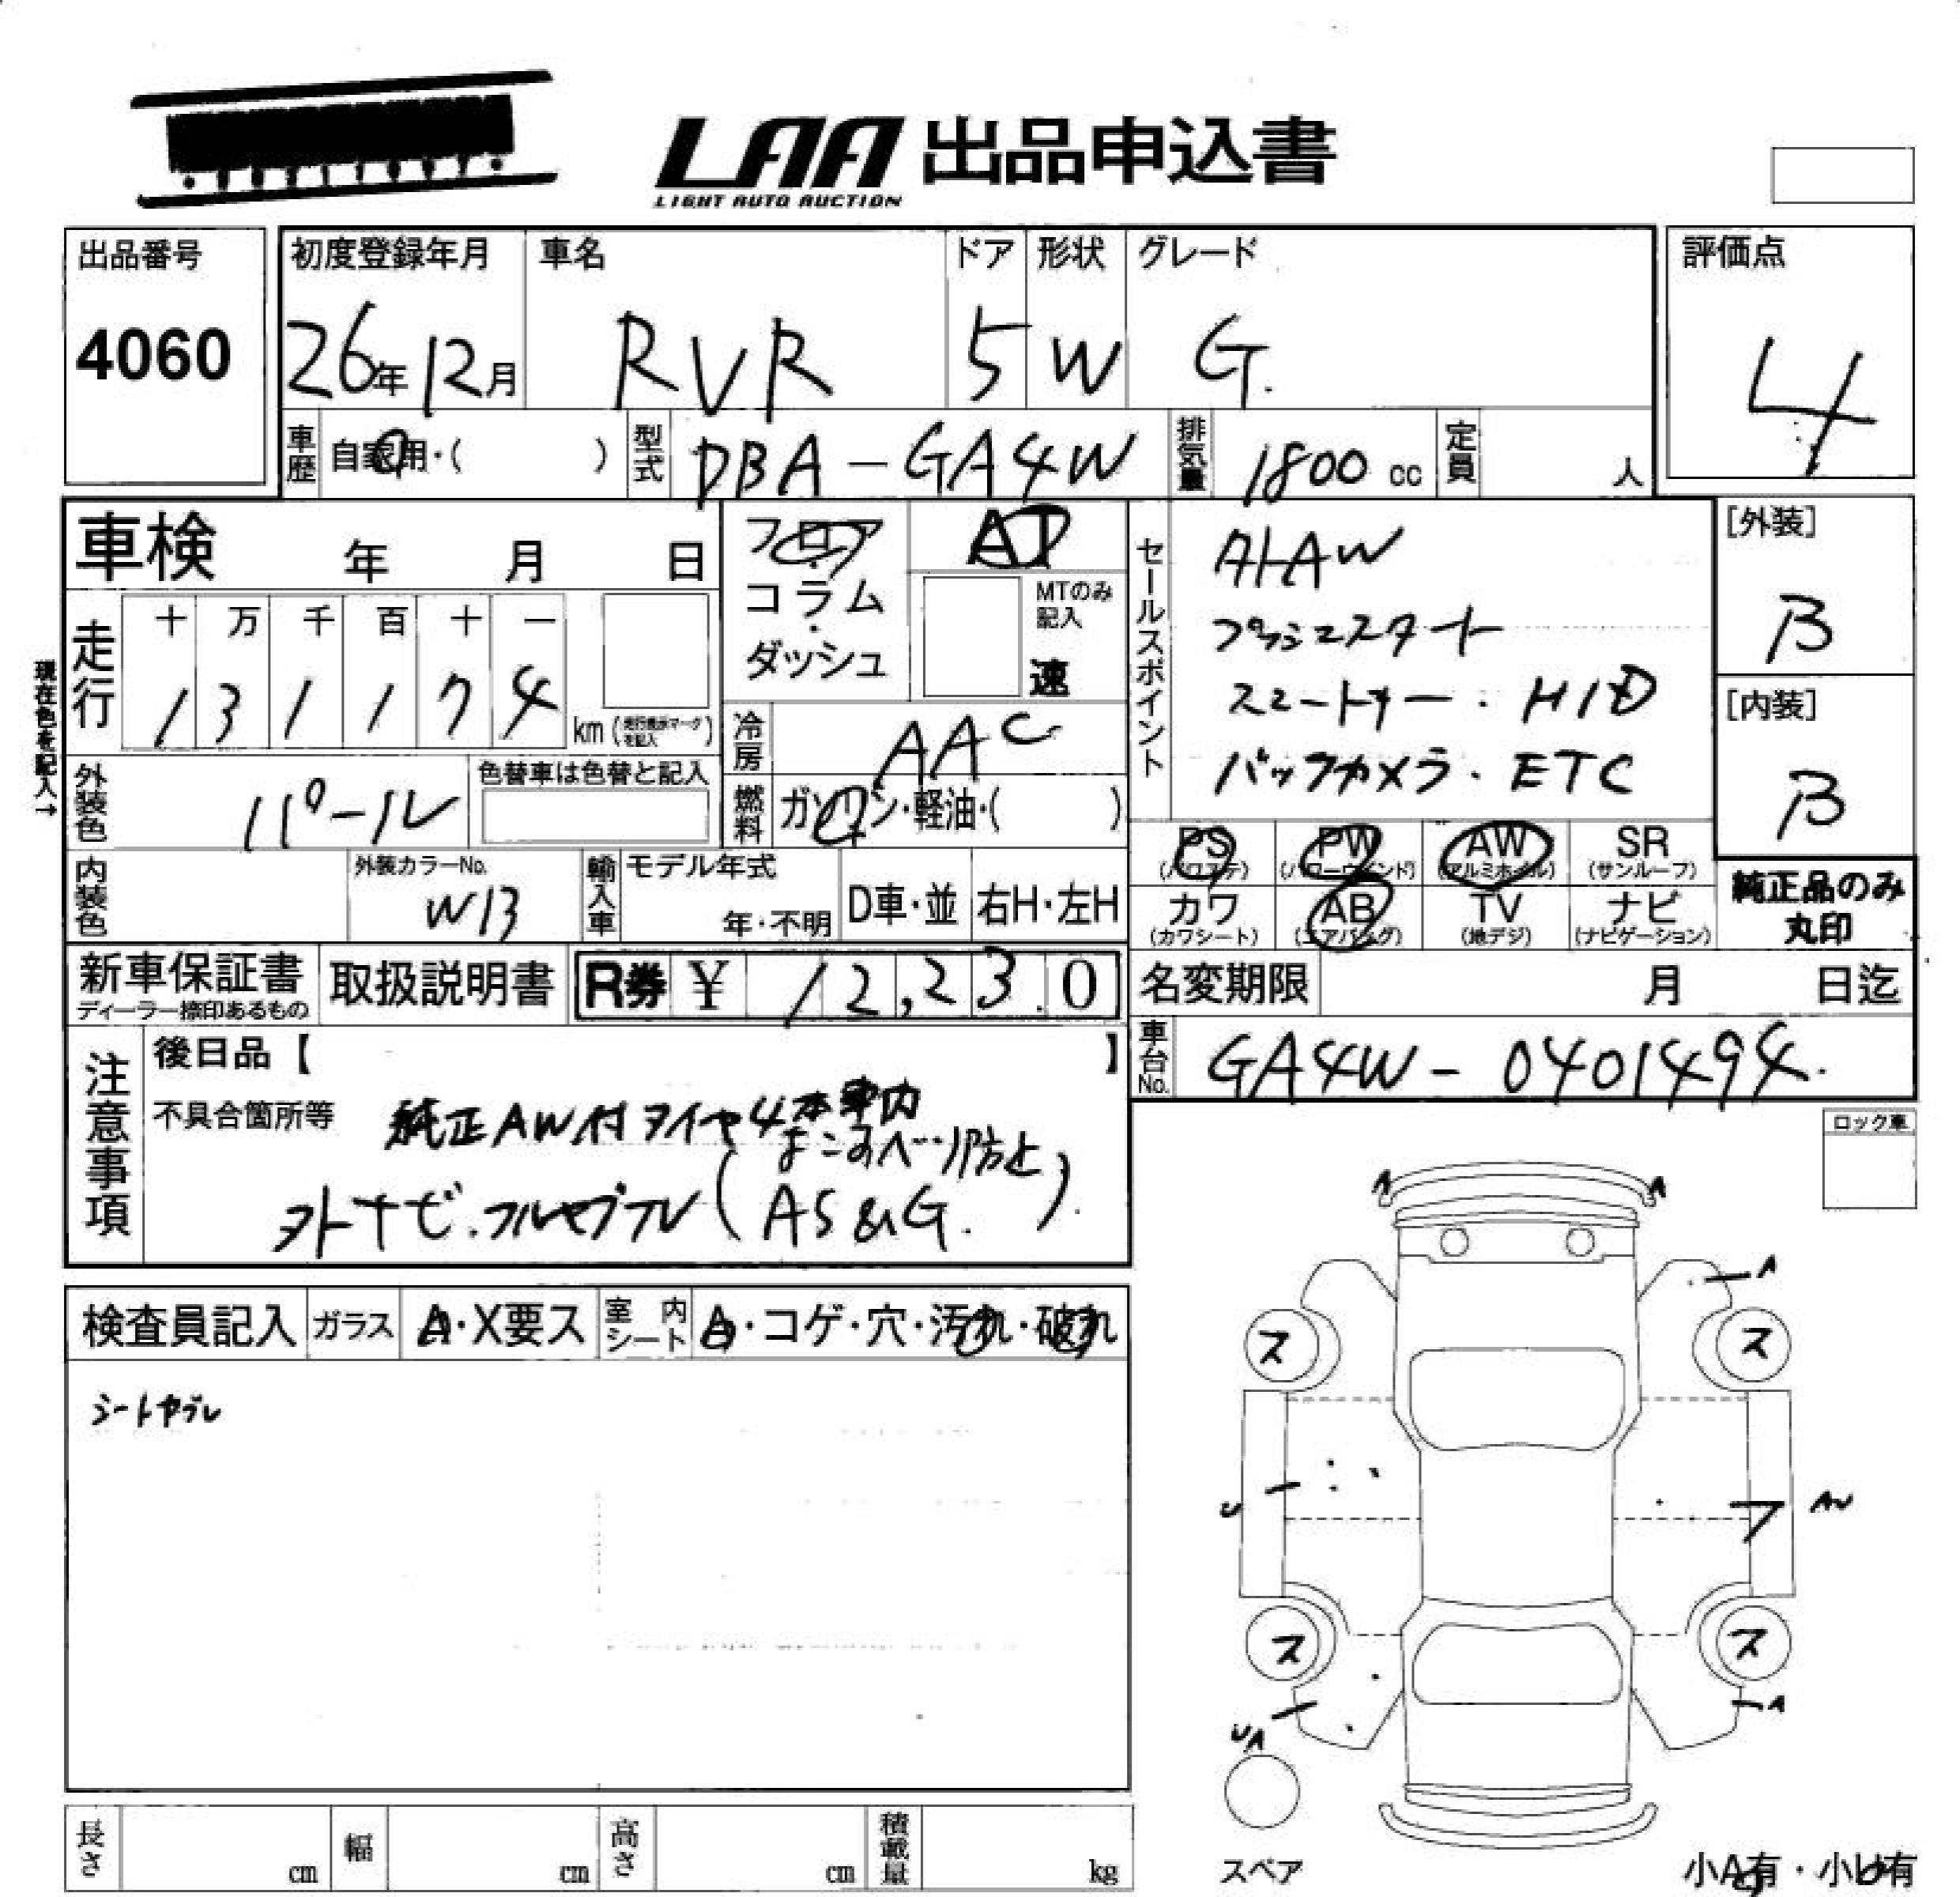 LAA 出品申込書
LIGHT AUTO AUCTION
出品番号
4060
初度登録年月
26年12月
車名
RVR
ドア
5
形状
W
グレード
G.
評価点
4
車歴 自家用・( )
型式 DBA-GA4W
排気量 1800 cc
定員 人
車検 年 月 日
フロア・コラム・ダッシュ
AT
MTのみ記入
速
セールスポイント
プッシュスタート
スマートキー・HID
バックカメラ・ETC
[外装]
B
[内装]
B
現在色を記入→
走行
十 万 千 百 十 一
1 3 1 1 7 4
km (走行表示マークを記入)
冷房 AAC
外装色 パール
色替車は色替と記入
燃料 ガソリン・軽油・( )
PS (パワステ)
PW (パワーウインド)
AW (アルミホイル)
SR (サンルーフ)
カワ (カワシート)
AB (エアバッグ)
TV (地デジ)
ナビ (ナビゲーション)
純正品のみ
丸印
内装色
外装カラーNo.
W13
輸入車
モデル年式
年・不明
D車・並
右H・左H
新車保証書
ディーラー捺印あるもの
取扱説明書
R券 ¥ 12,230
名変期限 月 日迄
車台No. GA4W-0401494.
注意事項
後日品【 】
不具合箇所等
純正AW付タイヤ4本車内
よこすべり防止
(AS&G.)
ロック車
検査員記入
ガラス A・X要ス
室内シート A・コゲ・穴・汚れ・破れ
シートヤブレ
A A
A
ス ス
U
AU
ス ス
UA
A
スペア
長さ cm
幅 cm
高さ cm
積載量 kg
小A有・小U有